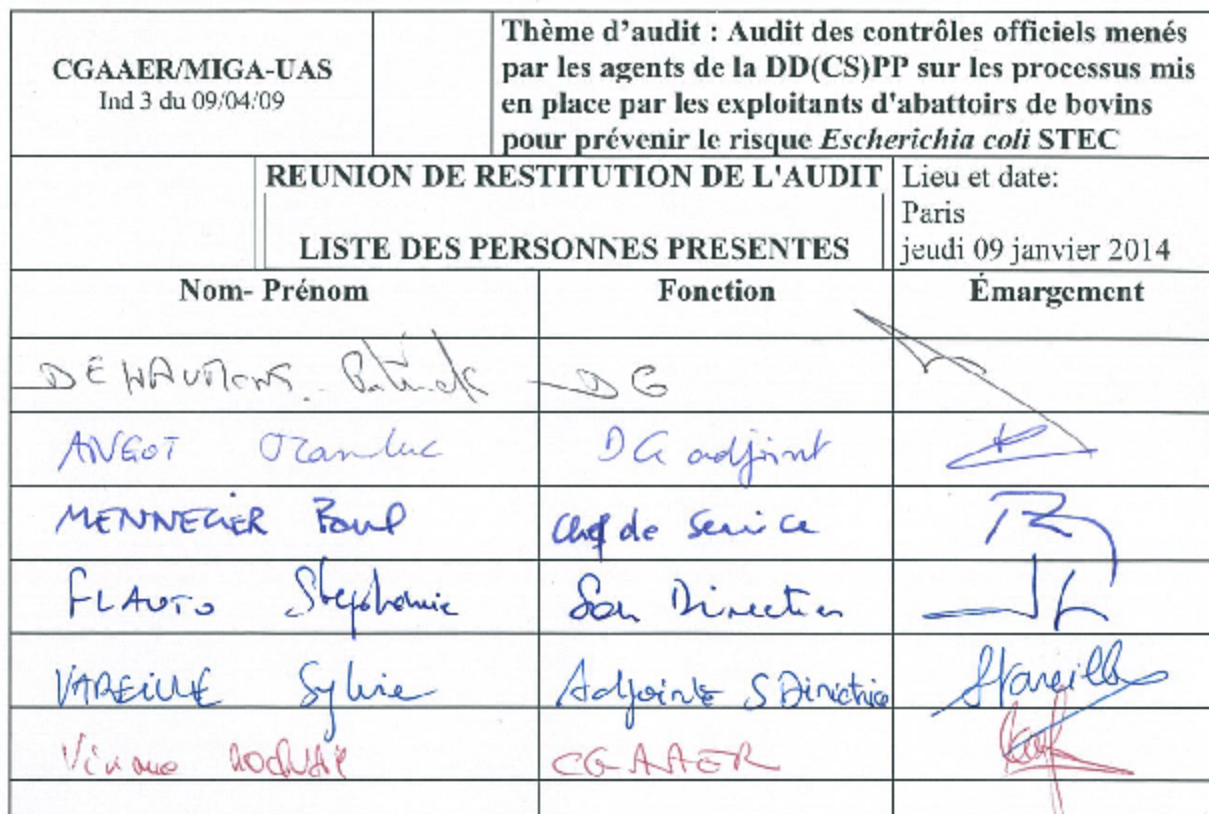 CGAAER/MIGA-UAS
Ind 3 du 09/04/09
Thème d'audit : Audit des contrôles officiels menés
par les agents de la DD(CS)PP sur les processus mis
en place par les exploitants d'abattoirs de bovins
pour prévenir le risque Escherichia coli STEC
REUNION DE RESTITUTION DE L'AUDIT
LISTE DES PERSONNES PRESENTES
Lieu et date:
Paris
jeudi 09 janvier 2014
Nom- Prénom Fonction Émargement
DEHAUMONT Patrick DG
ANGOT Jean-luc DG adjoint
MENNECIER Paul Chef de Service
FLAUTO Stéphanie Sous Direction
VAREILLE Sylvie Adjointe S Directrice SVareille
CGAAER